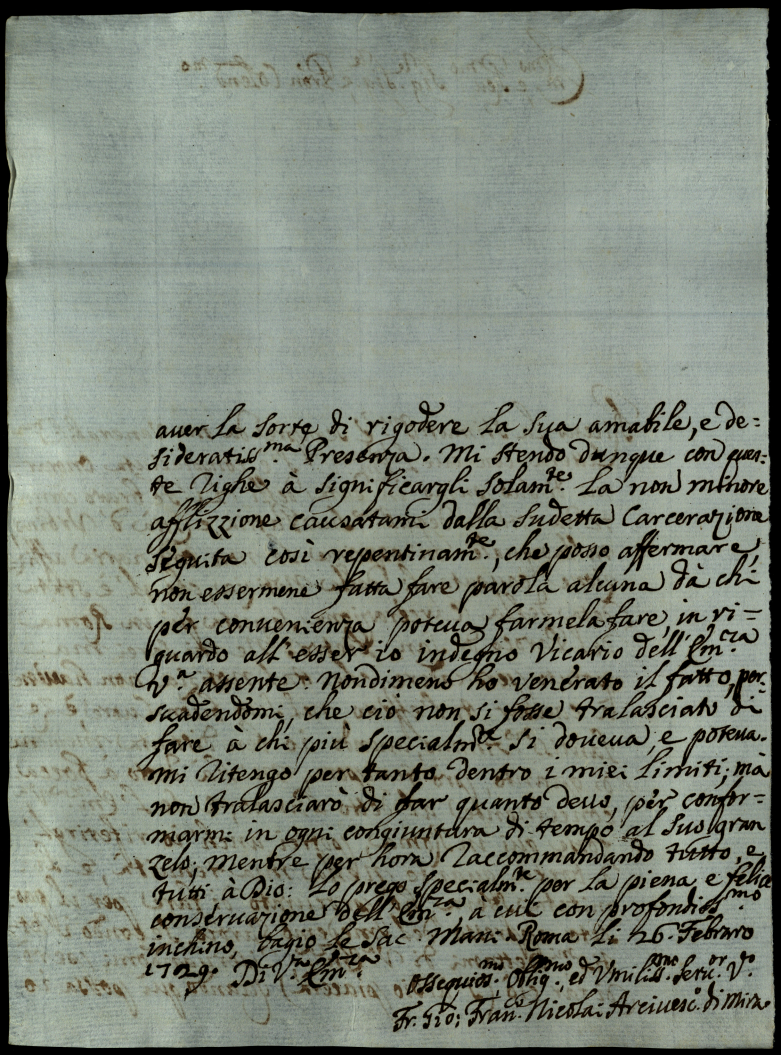 aver la sorte di rigodere la sua amabile, e de=
sideratiss.ma Presenza. Mi stendo dunque con ques=
te righe à significargli solam.te la non minore
afflizzione causatami dalla sudetta Carcerazione
seguita così repentinam.te, che posso affermare,
non essermene fatta fare parola alcuna dà chi
per convenienza poteva farmela fare, in ri=
guardo all'esser io indegno Vicario dell'Em.za
V.a assente. Nondimeno hò venerato il fatto, per=
suadendomi, che ciò non si fosse tralasciato di
fare à chi più specialm.te si doveva, e poteva.
Mi ritengo per tanto dentro i miei limiti; mà
non tralasciarò di far quanto devo, per confor=
marmi in ogni congiuntura di tempo al suo gran
zelo; mentre per hora raccommandando tutto, e
tutti à Dio: Lo prego specialm.te per la piena, e felice
conservazione dell'Em.za, à cui con profondiss.mo
inchino, bagio le Sac. Mani. Roma li 26. Febraro
1729. Di V.ra Em.za
Ossequios.mo Oblig.mo, ed Umiliss.mo Serv.or V.o
Fr. Gio: Fran.o Nicolai Arcivesc.o di Mira